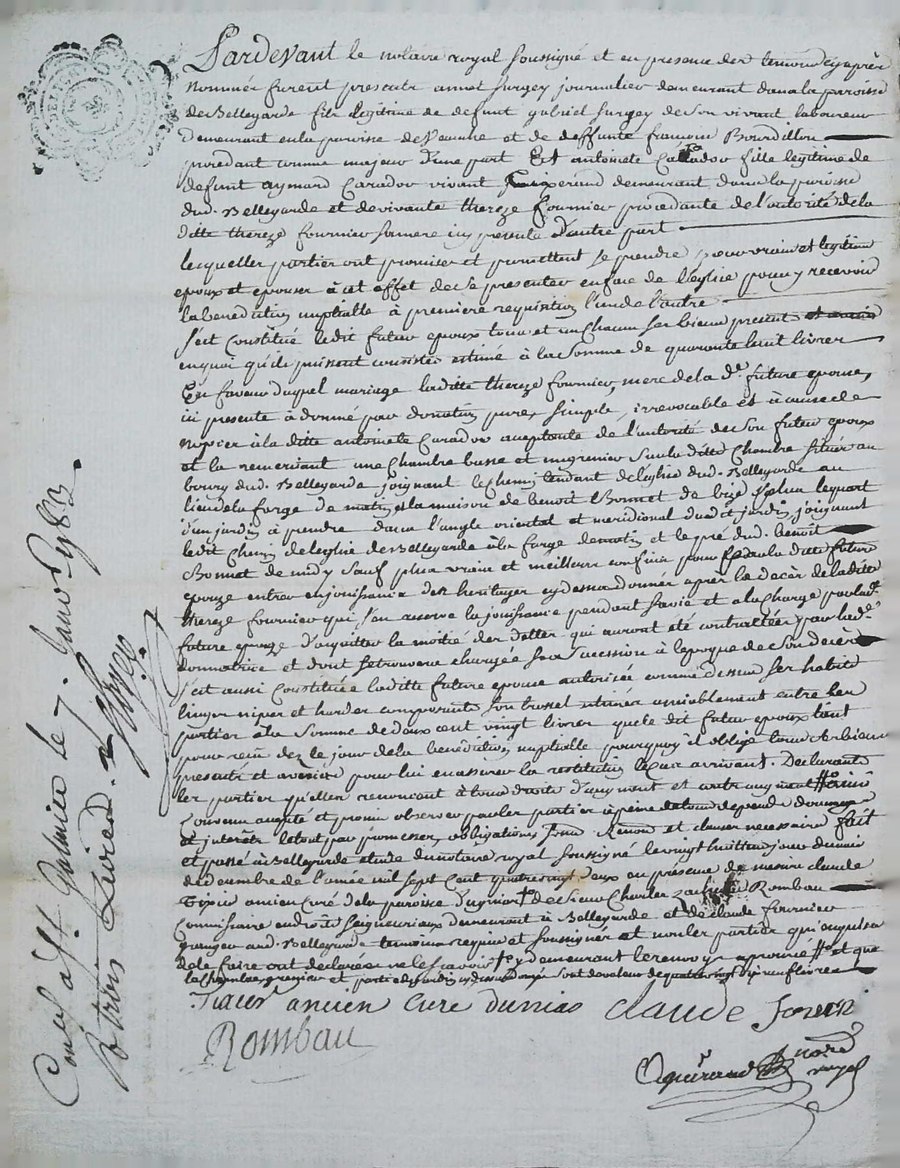 Pardevant le notaire royal soussigné et en presence des temoins cy après
nommés furent presents annet surgey journalier demeurant dans la paroisse
de Bellegarde fils legitime de defunt gabriel surgey de son vivant laboureur
demeurant en la paroisse de et de deffunte françoise Bourdillon
procedant comme majeur d'une part Et antoinete Caradou fille legitime de
defunt aymard Caradou vivant demeurant dans la paroisse
dud. Bellegarde et de vivante thereze fournier procedante de l'autorité de la
ditte thereze fournier sa mere icy presente d'autre part
lesquelles parties ont promises et promettent se prendre pour vrais et legitimes
epoux et epouse à cet effet de se presenter en face de l'eglise pour y recevoir
la benediction nuptialle à premiere requisition l'un de l'autre
s'est constitué ledit futur epoux tous et un chacun ses biens presents
en quoi qu'ils puissent consister estimé à la somme de quarente huit livres
En faveur duquel mariage laditte thereze fournier, mere de la de. future epouse,
ici presente à donné par donation pure, simple, irrevocable et à cause de
nopces à la ditte antoinete Caradou acceptante de l'autorité de son futur epoux
et la remerciant une chambre basse et un grenier sur la ditte chambre située au
bourg dud. Bellegarde joignant le chemin tendant de l'eglise dud. Bellegarde au
lieu de la forge de matin et la maison de benoit Bonnet de bize plus le quart
d'un jardin à prendre dans l'angle oriental et meridional dud. jardin joignant
ledit chemin de l'eglise de Bellegarde à la forge de matin et le pré dud. benoit
Bonnet de midy sauf plus vrais et meilleurs confins pour par la ditte future
epouze entrer en jouissance des heritages cy dessus donnés après le decès de laditte
thereze fournier qui s'en reserve la jouissance pendant sa vie et à la charge par lad.
future epouze d'acquitter la moitié des dettes qui auront été contractées par lad.
donnatrice et dont se trouvera chargée sa succession à l'epoque de son decès
s'est aussi constituée laditte future epouse autorisée comme dessus ses habits
linges nipes et hardes composants son trosset estimés amiablement entre les
parties à la somme de deux cent vingt livres que le dit futur epoux tient
pour reçu dez le jour de la benediction nuptialle pourquoy il oblige tous ses biens
presents et avenir pour lui en assurer la restitution le cas arrivant. Declarants
les parties qu'elles renoncent à tous droits d'augment et contr'augment
convenu accepté et promis observer par les parties à peine de tous depends dommages
et interets le tout par promesses, obligations, renon et clauses necessaires fait
et passé à Bellegarde etude du notaire royal soussigné le vingt huitieme jour du mois
de decembre de l'année mil sept cent quatre vingt deux en presence de messire claude
ancien curé de la paroisse de sieur Charles Rombau
Commissaire en droits seigneuriaux demeurant à Bellegarde et de claude fournier
granger aud. Bellegarde temoins requis et soussignés et non les parties qui enquises
de le faire ont declarées ne le savoir y demeurant le renvoy approuvé et que
la chambre, grenier et partie de jardin cy dessus sont de valeur de livres
ancien Curé claude
Rombau
nore
royal
Conlé à St. Galmier le 7. Janv 1783